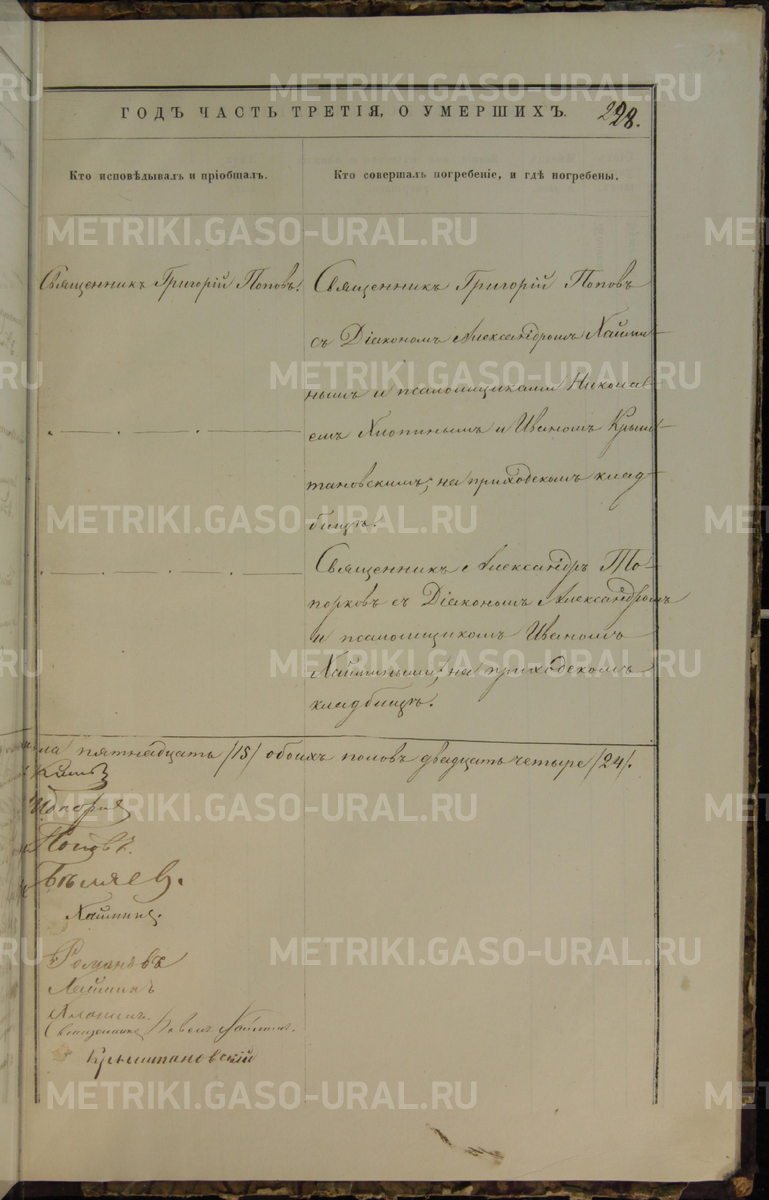 ГОДЪ ЧАСТЬ ТРЕТІЯ, О УМЕРШИХЪ.
228.
Кто исповѣдывалъ и пріобщалъ.
Кто совершалъ погребеніе, и гдѣ погребены.
Священникъ Григорій Поповъ.
Священникъ Григорій Поповъ
съ Діакономъ Александромъ Наими-
нымъ и псаломщиками Никола-
емъ Хлопинымъ и Иваномъ Крыш-
тановскимъ, на приходскомъ клад-
бищѣ.
Священникъ Александръ То-
порковъ съ Діакономъ Александромъ
и псаломщикомъ Иваномъ
Наимиными, на приходскомъ
кладбищѣ.
пятнадцать /15/ обоихъ половъ двадцать четыре /24/.
Поповъ.
Бѣляевъ.
Романовъ
Хлопинъ.
Священникъ
Крыштановскій
METRIKI.GASO-URAL.RU